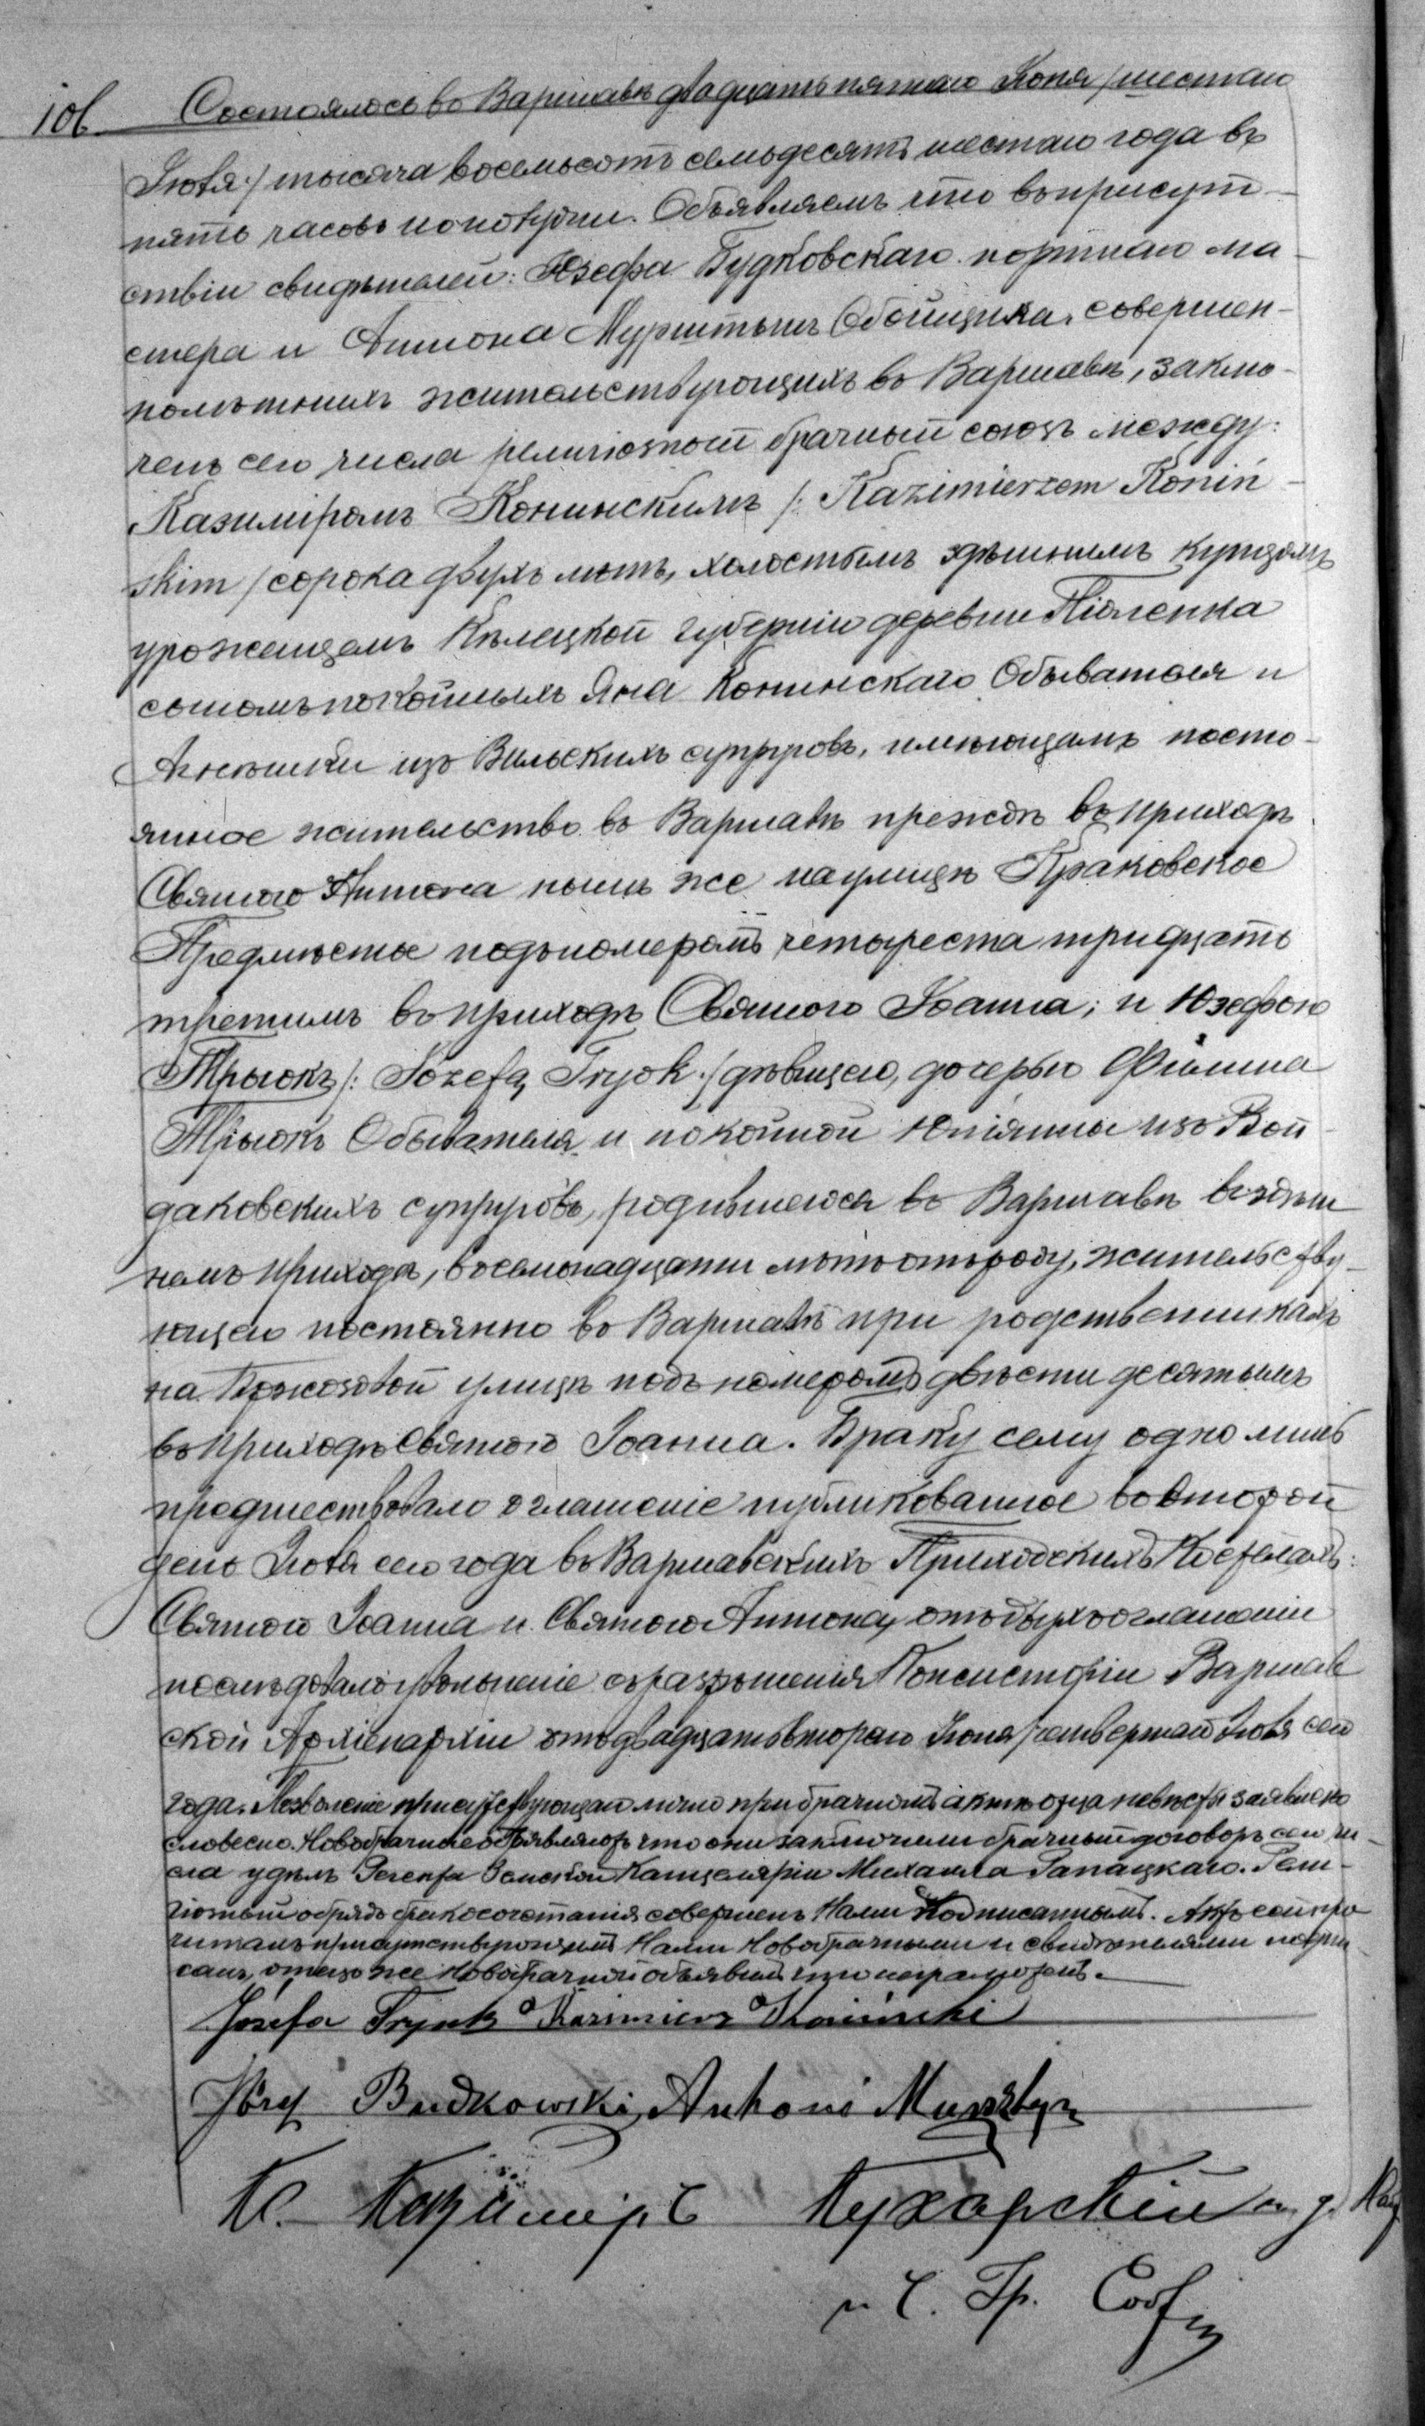 106. Состоялось въ Варшавѣ двадцать пятаго Іюня /шестаго
Іюля:/ тысяча восемьсотъ семьдесятъ шестаго года въ
пять часовъ пополудни. Объявляемъ что въ присут-
ствіи свидѣтелей: Юзефа Будковскаго портнаго ма-
стера и Антона Мурштынъ Обойщика, совершен-
нолѣтнихъ жительствующихъ въ Варшавѣ, заклю-
ченъ сего числа религіозный брачный союзъ между:
Казиміромъ Конинскимъ /: Kazimierzem Koniń-
skim / сорока двухъ лѣтъ, холостымъ здѣшнимъ купцомъ
урожденцемъ Кѣлецкой губерніи деревни
сыномъ покойныхъ Яна Конинскаго Обывателя и
Агнешки изъ Вильскихъ супруговъ, имѣющимъ посто-
янное жительство въ Варшавѣ прежде въ приходѣ
Святого Антона нынѣ же на улицѣ Краковское
Предмѣстье подъ номеромъ четыреста тридцать
третимъ въ приходѣ Святого Іоанна; и Юзефою
Трыокъ /: Józefą Tryok :/ дѣвицею, дочерью Филипа
Трыокъ Обывателя и покойной Юліянны изъ Вой-
даковскихъ супруговъ, родившеюся въ Варшавѣ въ здѣш-
немъ приходѣ, восемнадцати лѣтъ отъ роду, жительству-
ющею постоянно въ Варшавѣ при родственникахъ
на улицѣ подъ номеромъ двѣсти десятымъ
въ приходѣ Святого Іоанна. Браку сему одно лишь
предшествовало оглашеніе публикованное во второй
день Іюля сего года въ Варшавскихъ Приходскихъ Костелахъ:
Святого Іоанна и Святого Антона, отъ двухъ оглашеній
послѣдовало увольненіе съ разрѣшенія Консисторіи Варшав-
ской Архіепархіи отъ двадцать втораго Іюня /четвертаго Іюля сего
года. Позволеніе присутствующаго лично при брачномъ актѣ отца невѣсты заявлено
словесно. Новобрачные объявляютъ что они заключили брачный договоръ сего чи-
сла у Регента Земской Канцеляріи Михаила Рапацкаго. Рели-
гіозный обрядъ бракосочетанія совершенъ Нами Подписаннымъ. Актъ сей про-
читанъ присутствующимъ Нами Новобрачными и свидѣтелями подпи-
санъ, отецъ же Новобрачной объявилъ что неграмотенъ.
Józefa Tryok Kazimierz Koniński
Józef Budkowski, Antoni Mursztyn
К. Казиміръ Кухарскій